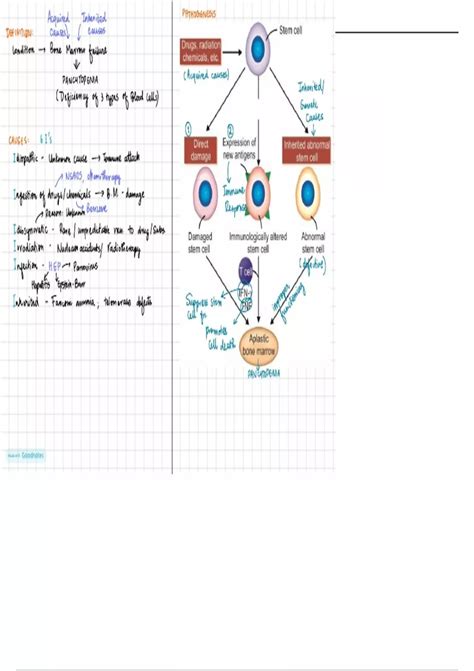 Acquired Inherited
DEFINITION: Causes causes
Condition → Bone Marrow failure
PANCYTOPENIA
(Deficiency of 3 types of blood cells)
CAUSES: 6 I's
Idiopathic - Unknown cause → Immune attack
NSAIDS, chemotherapy
Ingestion of drugs/chemicals → B.M. damage
Benzene
Idiosyncratic - Rare / unpredictable rxn to drug/subs
Irradiation - Nuclear accidents/ radiotherapy
Infection - HEP → Parvovirus
Hepatitis Epstein-Barr
Inherited - Fanconi anemia, telomerase defects
Made with Goodnotes
PATHOGENESIS
Stem cell
Drugs, radiation
chemicals, etc.
(Acquired causes)
Inherited/
Genetic
Causes
① ②
Direct
damage
Expression of
new antigens
Inherited abnormal
stem cell
Immune
Response
Damaged
stem cell
Immunologically altered
stem cell
Abnormal
stem cell
(defective)
T cell
IFN-γ
TNF
Suppress stem
cell fn
Promotes
Cell death
improper
functioning
Aplastic
bone marrow
PANCYTOPENIA